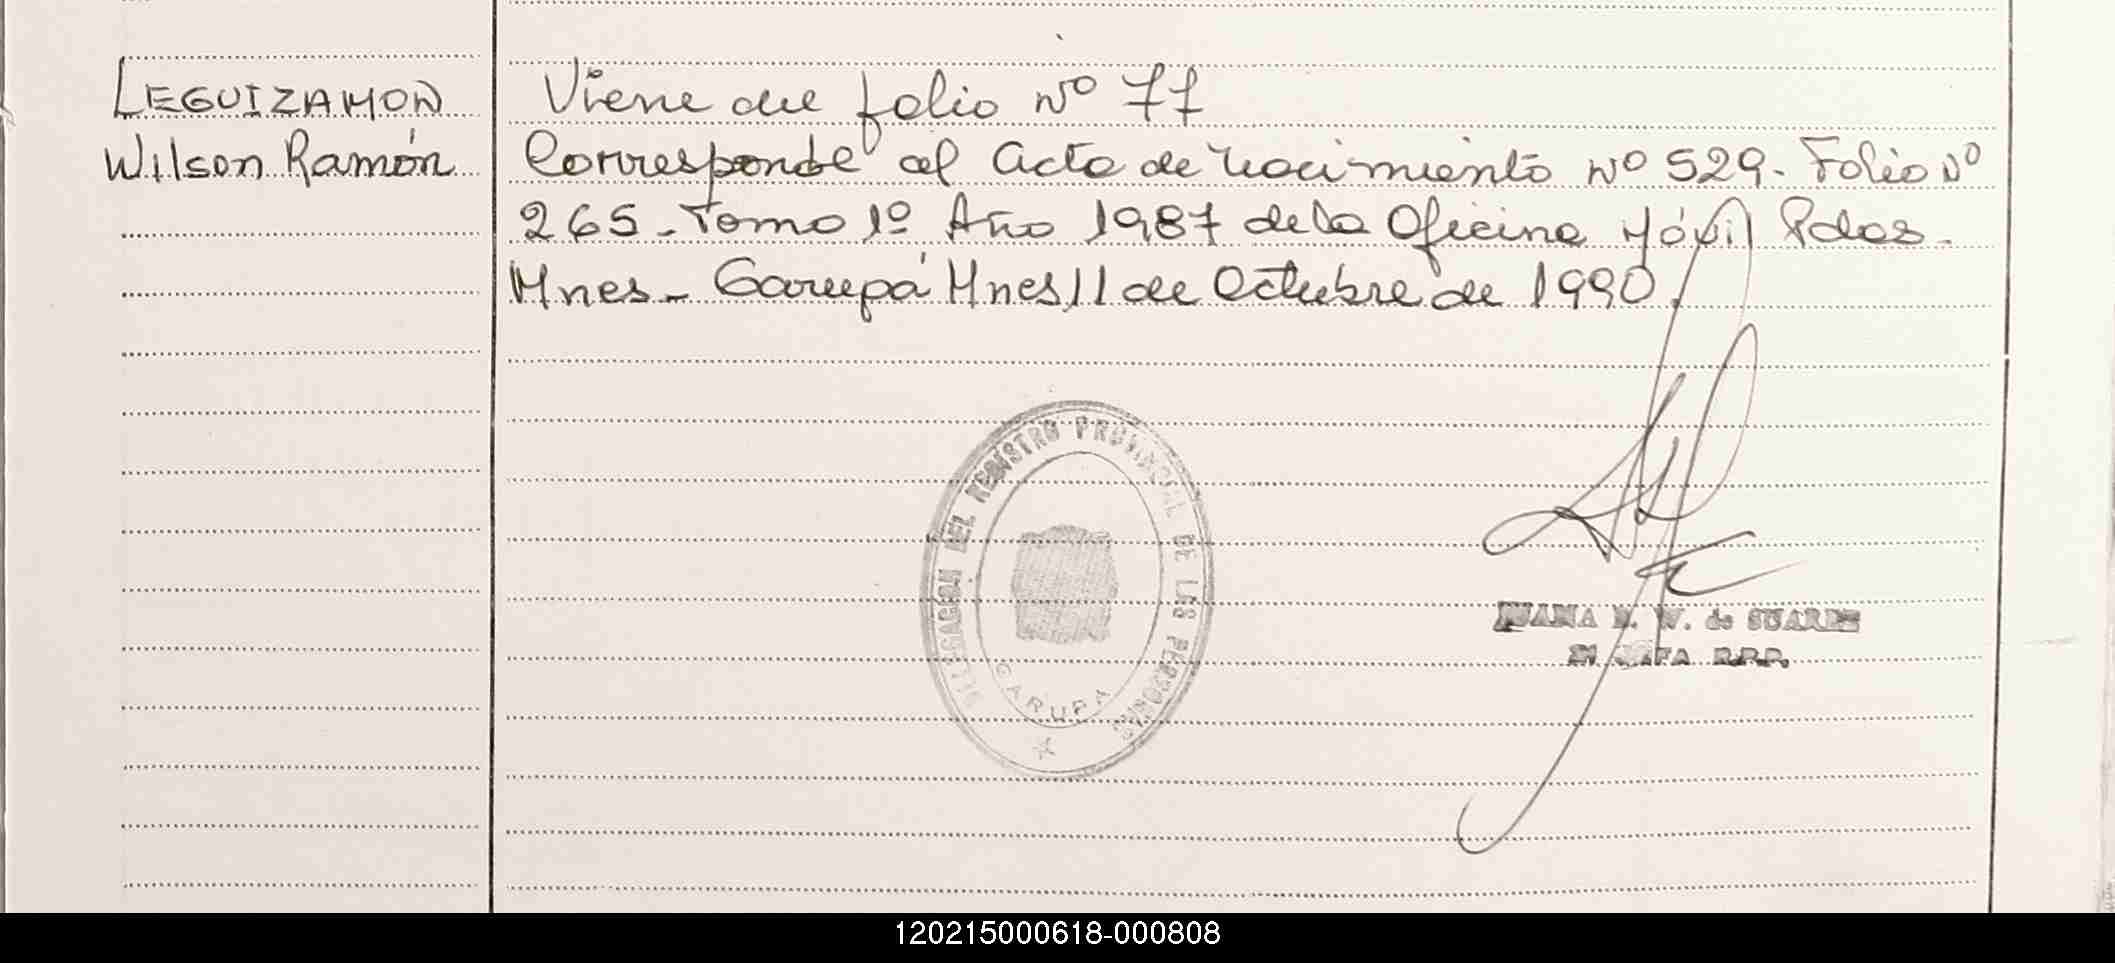 LEGUIZAMON
Wilson Ramón
Viene del folio Nº 77
Corresponde al Acta de nacimiento Nº 529. Folio Nº
265. Tomo 1º Año 1987 de la Oficina Móvil Pdas.
Mnes. Garupá Mnes 11 de Octubre de 1990.
DELEGACION DEL REGISTRO PROVINCIAL DE LAS PERSONAS
GARUPA
W. de SUAREZ
R.P.P.
120215000618-000808